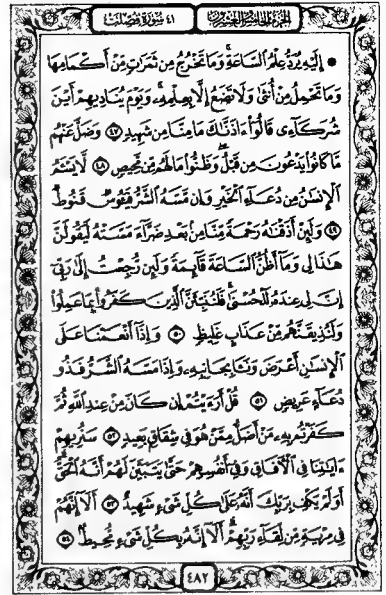 الجزء الخامس والعشرون
٤١ سورة فصلت
۞ إِلَيْهِ يُرَدُّ عِلْمُ السَّاعَةِ وَمَا تَخْرُجُ مِن ثَمَرَاتٍ مِّنْ أَكْمَامِهَا
وَمَا تَحْمِلُ مِنْ أُنثَىٰ وَلَا تَضَعُ إِلَّا بِعِلْمِهِ وَيَوْمَ يُنَادِيهِمْ أَيْنَ
شُرَكَاءِى قَالُوا ءَاذَنَّاكَ مَا مِنَّا مِن شَهِيدٍ ٤٧ وَضَلَّ عَنْهُم
مَّا كَانُوا يَدْعُونَ مِن قَبْلُ وَظَنُّوا مَا لَهُم مِّن مَّحِيصٍ ٤٨ لَّا يَسْـَٔمُ
الْإِنسَٰنُ مِن دُعَاءِ الْخَيْرِ وَإِن مَّسَّهُ الشَّرُّ فَيَـُٔوسٌ قَنُوطٌ
٤٩ وَلَئِنْ أَذَقْنَٰهُ رَحْمَةً مِّنَّا مِن بَعْدِ ضَرَّاءَ مَسَّتْهُ لَيَقُولَنَّ
هَٰذَا لِى وَمَا أَظُنُّ السَّاعَةَ قَائِمَةً وَلَئِن رُّجِعْتُ إِلَىٰ رَبِّى
إِنَّ لِى عِندَهُ لَلْحُسْنَىٰ فَلَنُنَبِّئَنَّ الَّذِينَ كَفَرُوا بِمَا عَمِلُوا
وَلَنُذِيقَنَّهُم مِّنْ عَذَابٍ غَلِيظٍ ٥٠ وَإِذَا أَنْعَمْنَا عَلَى
الْإِنسَٰنِ أَعْرَضَ وَنَـَٔا بِجَانِبِهِ وَإِذَا مَسَّهُ الشَّرُّ فَذُو
دُعَاءٍ عَرِيضٍ ٥١ قُلْ أَرَءَيْتُمْ إِن كَانَ مِنْ عِندِ اللَّهِ ثُمَّ
كَفَرْتُم بِهِ مَنْ أَضَلُّ مِمَّنْ هُوَ فِى شِقَاقٍ بَعِيدٍ ٥٢ سَنُرِيهِمْ
ءَايَٰتِنَا فِى الْءَافَاقِ وَفِى أَنفُسِهِمْ حَتَّىٰ يَتَبَيَّنَ لَهُمْ أَنَّهُ الْحَقُّ
أَوَلَمْ يَكْفِ بِرَبِّكَ أَنَّهُ عَلَىٰ كُلِّ شَىْءٍ شَهِيدٌ ٥٣ أَلَا إِنَّهُمْ
فِى مِرْيَةٍ مِّن لِّقَاءِ رَبِّهِمْ أَلَا إِنَّهُ بِكُلِّ شَىْءٍ مُّحِيطٌ ٥٤
٤٨٢